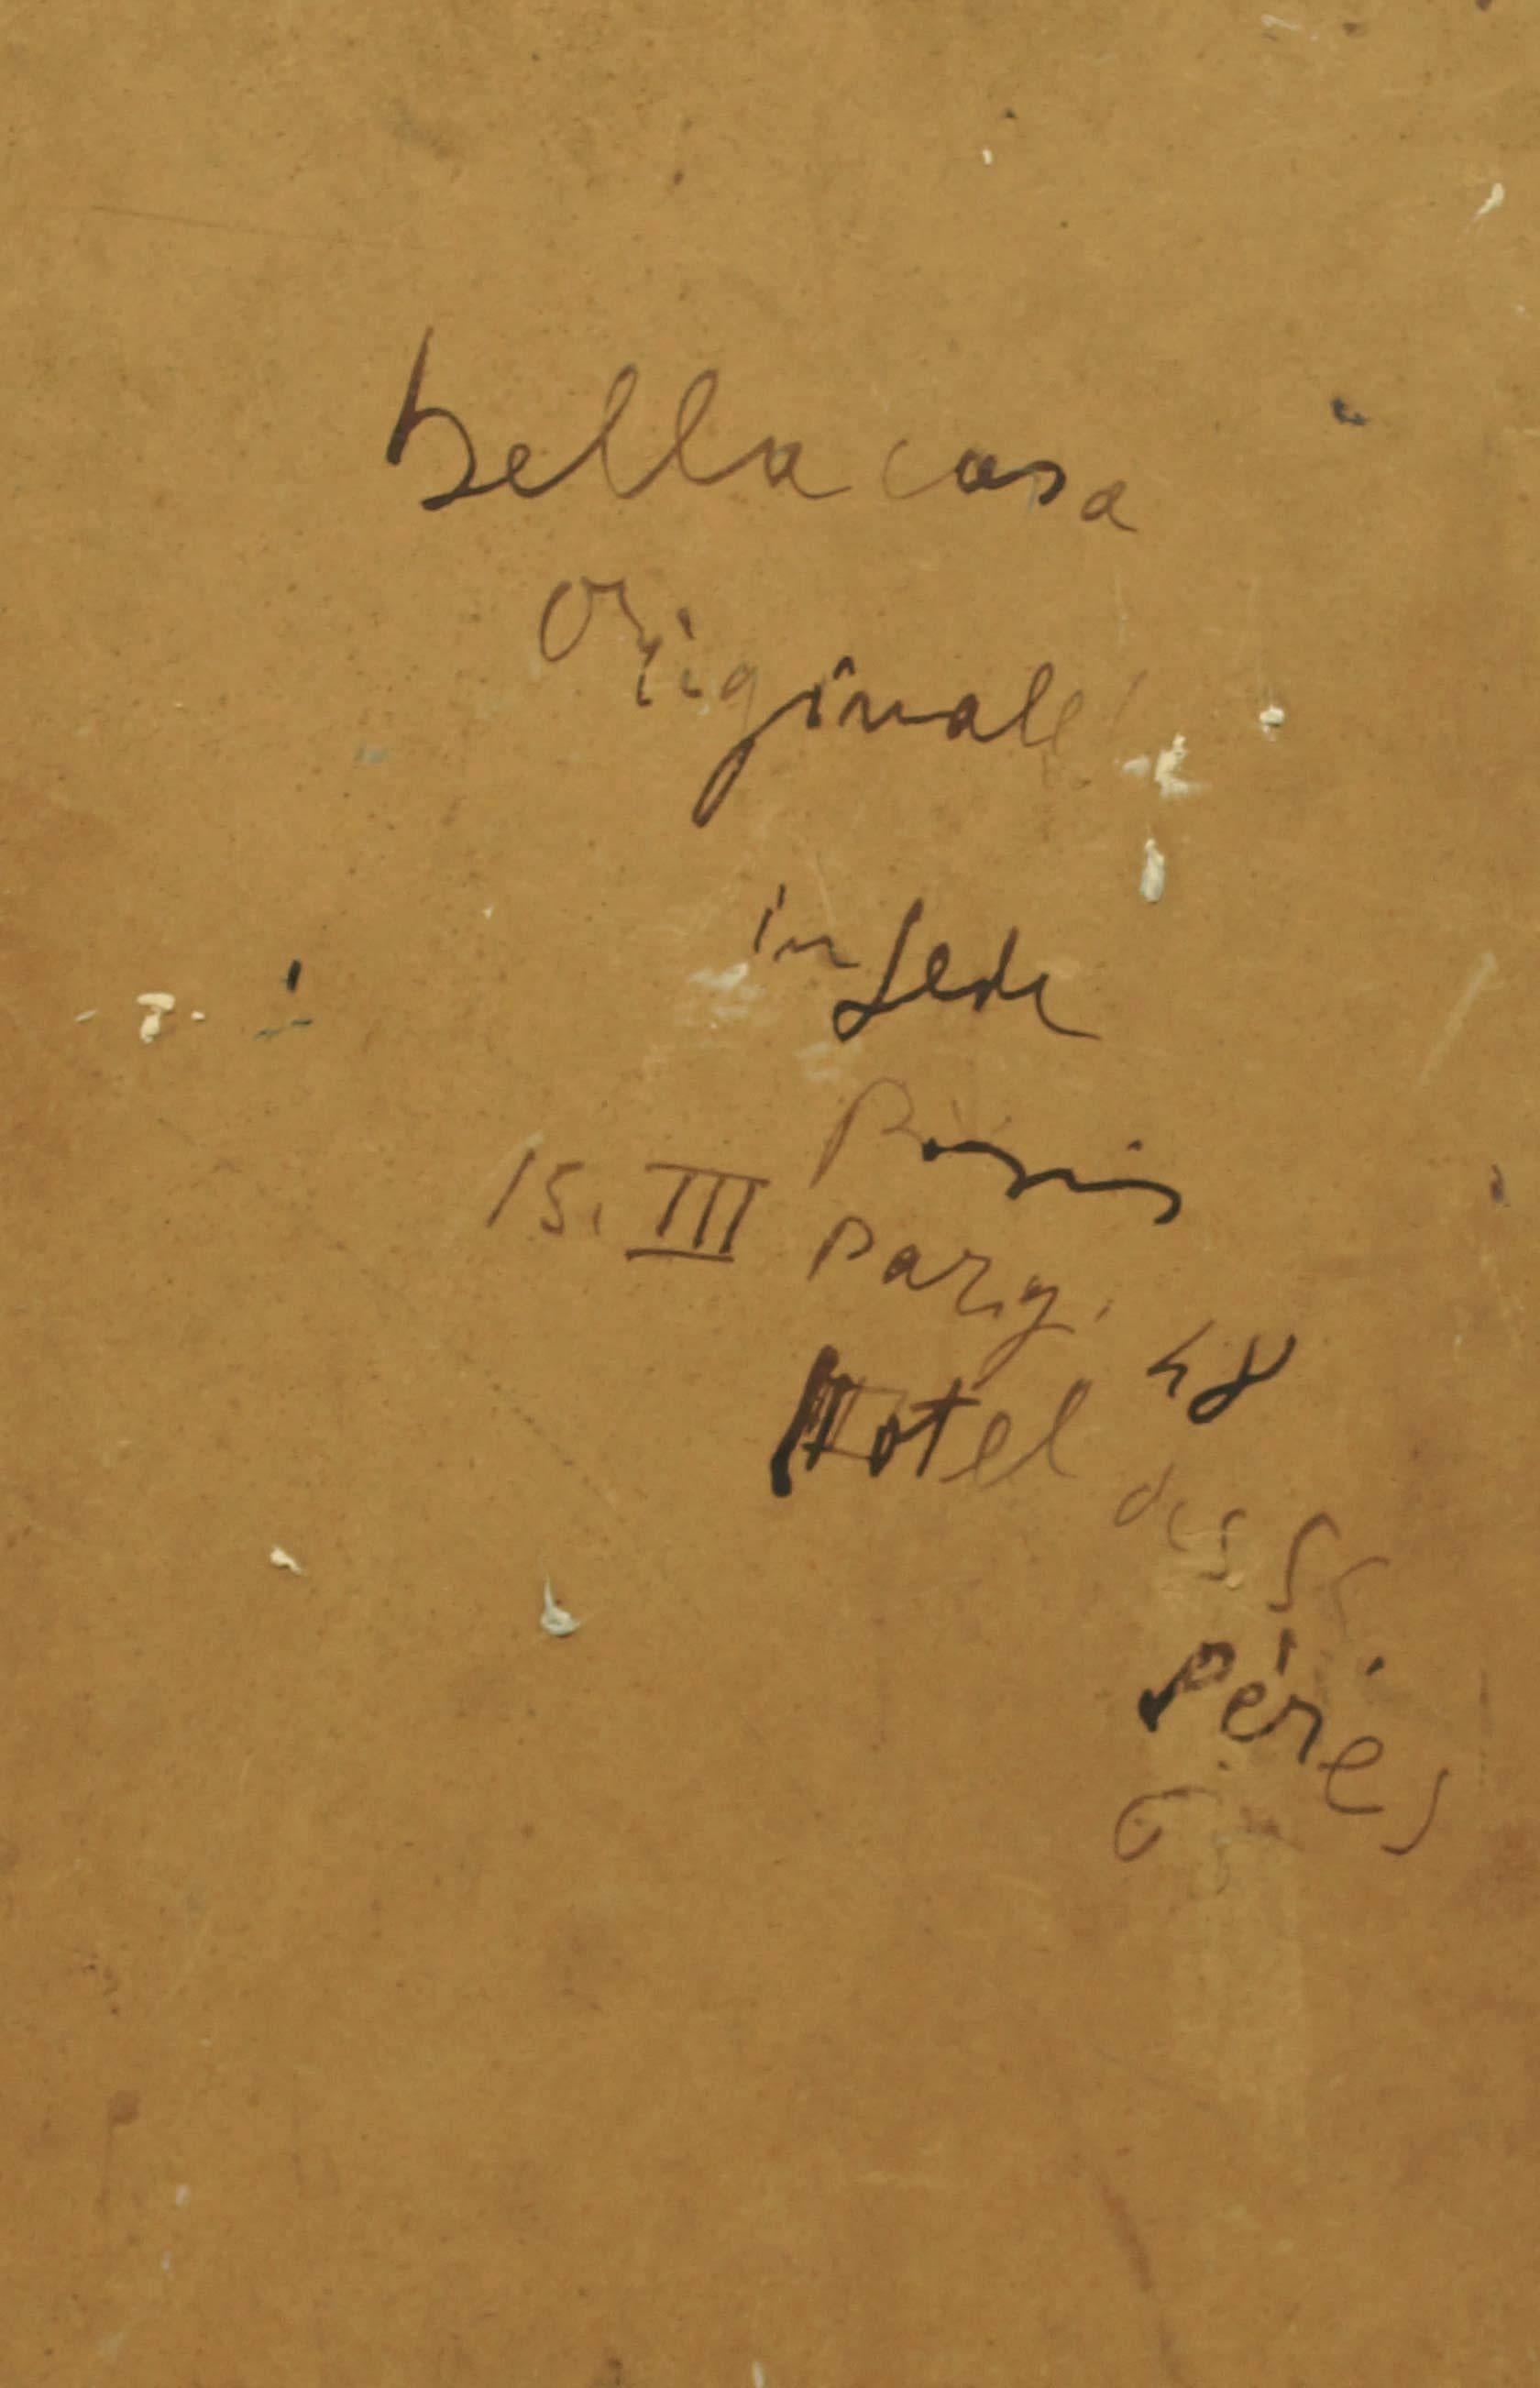 bella casa
Originale
in fede
15. III Parigi 48
Hotel des SS.
Pères